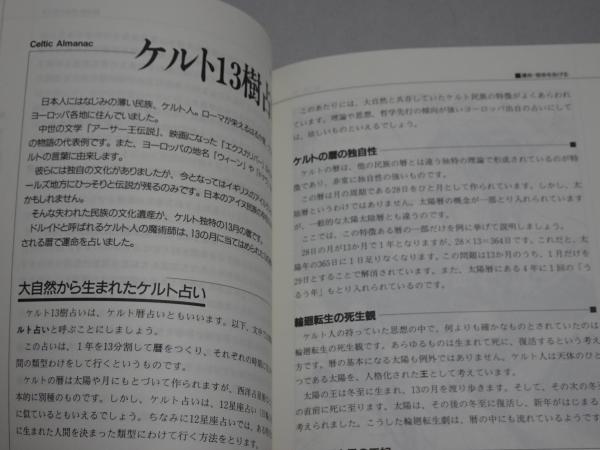 Celtic Almanac
ケルト13樹占
日本人にはなじみの薄い民族、ケルト人。ローマが栄えるはるか昔、
ヨーロッパ各地に住んでいました。
中世の文学「アーサー王伝説」、映画になった「エクスカリバー」
の物語の代表例です。また、ヨーロッパの地名「ウィーン」や
ルトの言葉に由来します。
彼らには独自の文化がありましたが、今となってはイギリスのアイル
ールズ地方にひっそりと伝説が残るのみです。日本のアイヌ民族の
かもしれません。
そんな失われた民族の文化遺産が、ケルト独特の13月の暦です。
ドルイドと呼ばれるケルト人の魔術師は、13の月に当てはめられた
される暦で運命を占いました。
大自然から生まれたケルト占い
ケルト13樹占いは、ケルト暦占いともいいます。以下、文中では
ルト占いと呼ぶことにしましょう。
この占いは、1年を13分割して暦をつくり、それぞれの時期に
間の類型わけをして行くというものです。
ケルトの暦は太陽や月にもとづいて作られますが、西洋占星
本的に別種のものです。しかし、ケルト占いは、12星座占い
に似ているともいえるでしょう。ちなみに12星座占いでは、ある
に生まれた人間を決まった類型にわけて行く方法をとります。
このあたりには、大自然と共存していたケルト民族の特徴がよくあらわれ
ています。理論や思想、哲学先行の傾向が強いヨーロッパ出自の占いにして
は、珍しいものといえるでしょう。
ケルトの暦の独自性
ケルトの暦は、他の民族の暦とは違う独特の理論で形成されているのが特
徴であり、非常に独自性の強いものです。
この暦は月の周期である28日をひと月として作られています。しかし、太
陰暦というわけではありません。太陽暦の概念が一部とり入れられています
が、一般的な太陽太陰暦とも違うのです。
ここでは、この特徴ある暦の一部だけを例に挙げて説明しましょう。
28日の月が13か月で1年となりますが、28×13＝364日です。これだと、太
陽年の365日に1日足りなくなります。この問題は13か月のうち、1月だけを
29日とすることで解消されています。また、太陽暦にある4年に1回の「う
るう年」もとり入れられているのです。
輪廻転生の死生観
ケルト人の持っていた思想の中で、何よりも確かなものとされていたのは
輪廻転生の死生観です。あらゆるものは生まれて死に、復活するという考え
方です。暦の基本になる太陽も例外ではありません。ケルト人は天体のひと
つである太陽を、人格化された王として考えています。
太陽の王は冬至に生まれ、13の月を渡り歩きます。そして、その次の冬
の直前に死に至ります。太陽は、その後の冬至に復活し、新年がはじまる
考えられました。こうした輪廻転生劇は、暦の中にも流れているようです